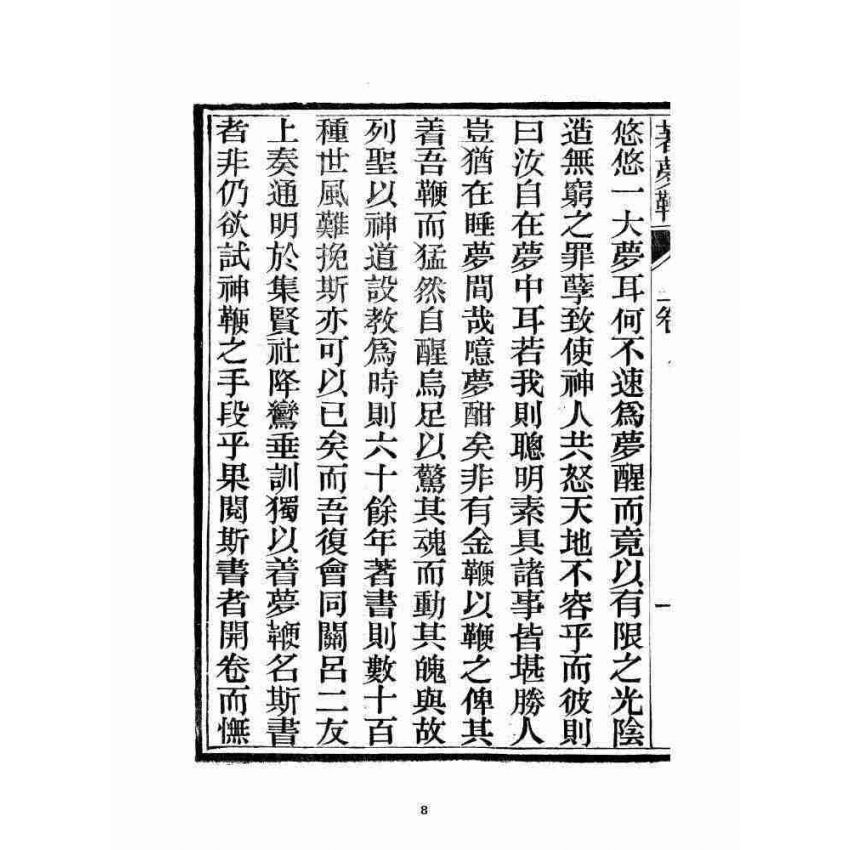 著夢鞭 一卷 一
悠悠一大夢耳何不速爲夢醒而竟以有限之光陰
造無窮之罪孽致使神人共怒天地不容乎而彼則
曰汝自在夢中耳若我則聰明素具諸事皆堪勝人
豈猶在睡夢間哉噫夢酣矣非有金鞭以鞭之俾其
着吾鞭而猛然自醒烏足以驚其魂而動其魄與故
列聖以神道設教爲時則六十餘年著書則數十百
種世風難挽斯亦可以已矣而吾復會同關呂二友
上奏通明於集賢社降鸞垂訓獨以着夢鞭名斯書
者非仍欲試神鞭之手段乎果閱斯書者開卷而憮
8